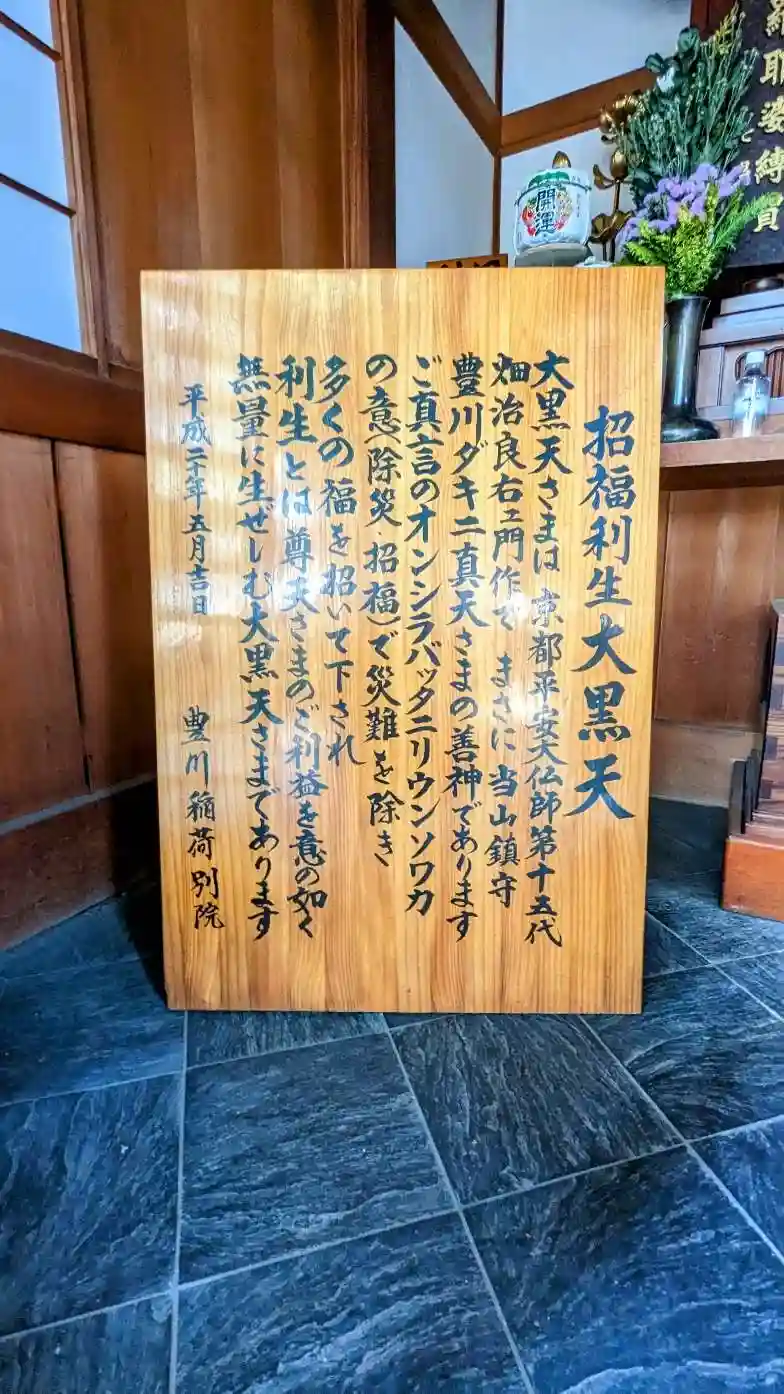 招福利生大黒天
大黒天さまは 京都平安大仏師第十五代
畑治良右ェ門作で まさに 当山鎮守
豊川ダキニ真天さまの善神であります
ご真言のオンシラバッタニリウンソワカ
の意(除災・招福)で災難を除き
多くの福を招いて下され
利生とは尊天さまのご利益を意の如く
無量に生ぜしむ大黒天さまであります
平成二十年五月吉日 豊川稲荷別院
開運